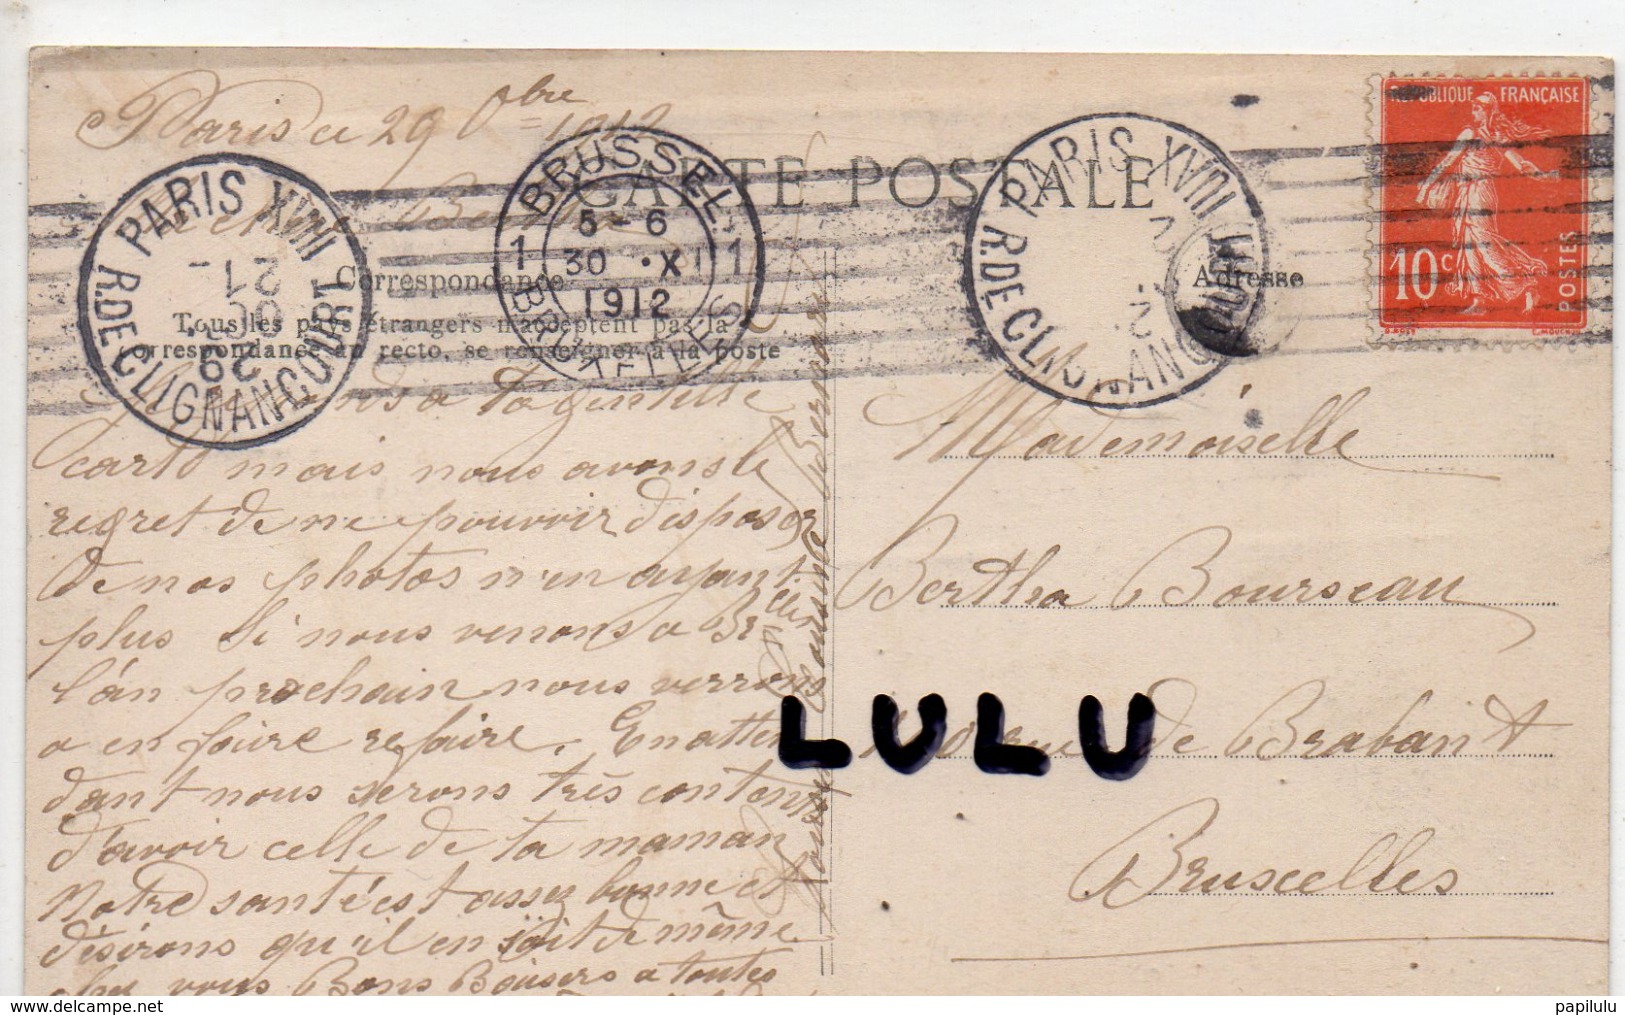 Paris ce 29 8bre 1912
CARTE POSTALE
Correspondance
Adresse
Tous les pays étrangers n'acceptent pas la
correspondance au recto, se renseigner à la poste
PARIS XVIII
R. DE CLIGNANCOURT
21 -
OC
29
BRUSSEL
1 1
5 - 6
30 · X
1912
BRUXELLES
PARIS XVIII
R. DE CLIGNANCOURT
REPUBLIQUE FRANÇAISE
10 c
POSTES
a ta gentille
carte mais nous avons le
regret de ne pouvoir disposer
de nos photos n'en ayant
plus Si nous venons a Bxlles
l'an prochain nous verrons
a en faire refaire. En atten
dant nous serons très contents
d'avoir celle de ta maman
Notre santé est assez bonne et
désirons qu'il en soit de même
chez vous Bons Baisers a toutes
Mademoiselle
Bertha Bourseau
rue de Brabant
Bruxelles
LULU
papilulu